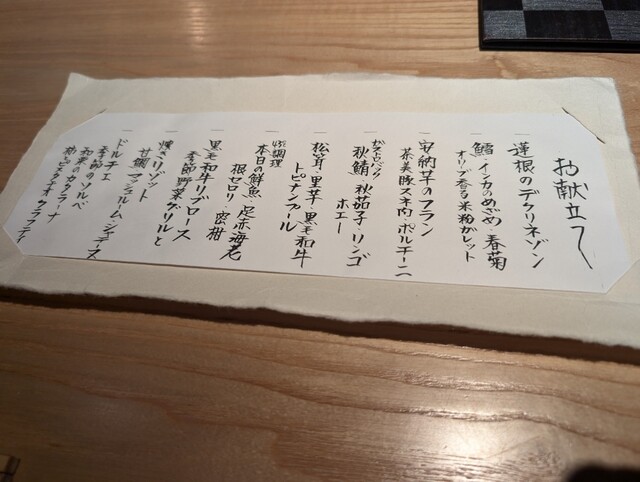 お献立て
一
蓮根のデクリネゾン
一
鱈・イカのめざめ・春菊
オリーブ香る米粉ガレット
一
安納芋のフラン
茶美豚スネ肉・ポルチーニ
一
秋鯖 秋茄子・リンゴ
ホエー
一
松茸・里芋・黒毛和牛
トピナンブール
一
調理
本日の鮮魚 足赤海老
根セロリ・密柑
一
黒毛和牛リブロース
季節野菜グリルと
一
焼きリゾット
甘鯛 マッシュルーム・
一
ドルチェ
季節のソルベ
和栗のカタラーナ
柿とピスタチオ クラフティ